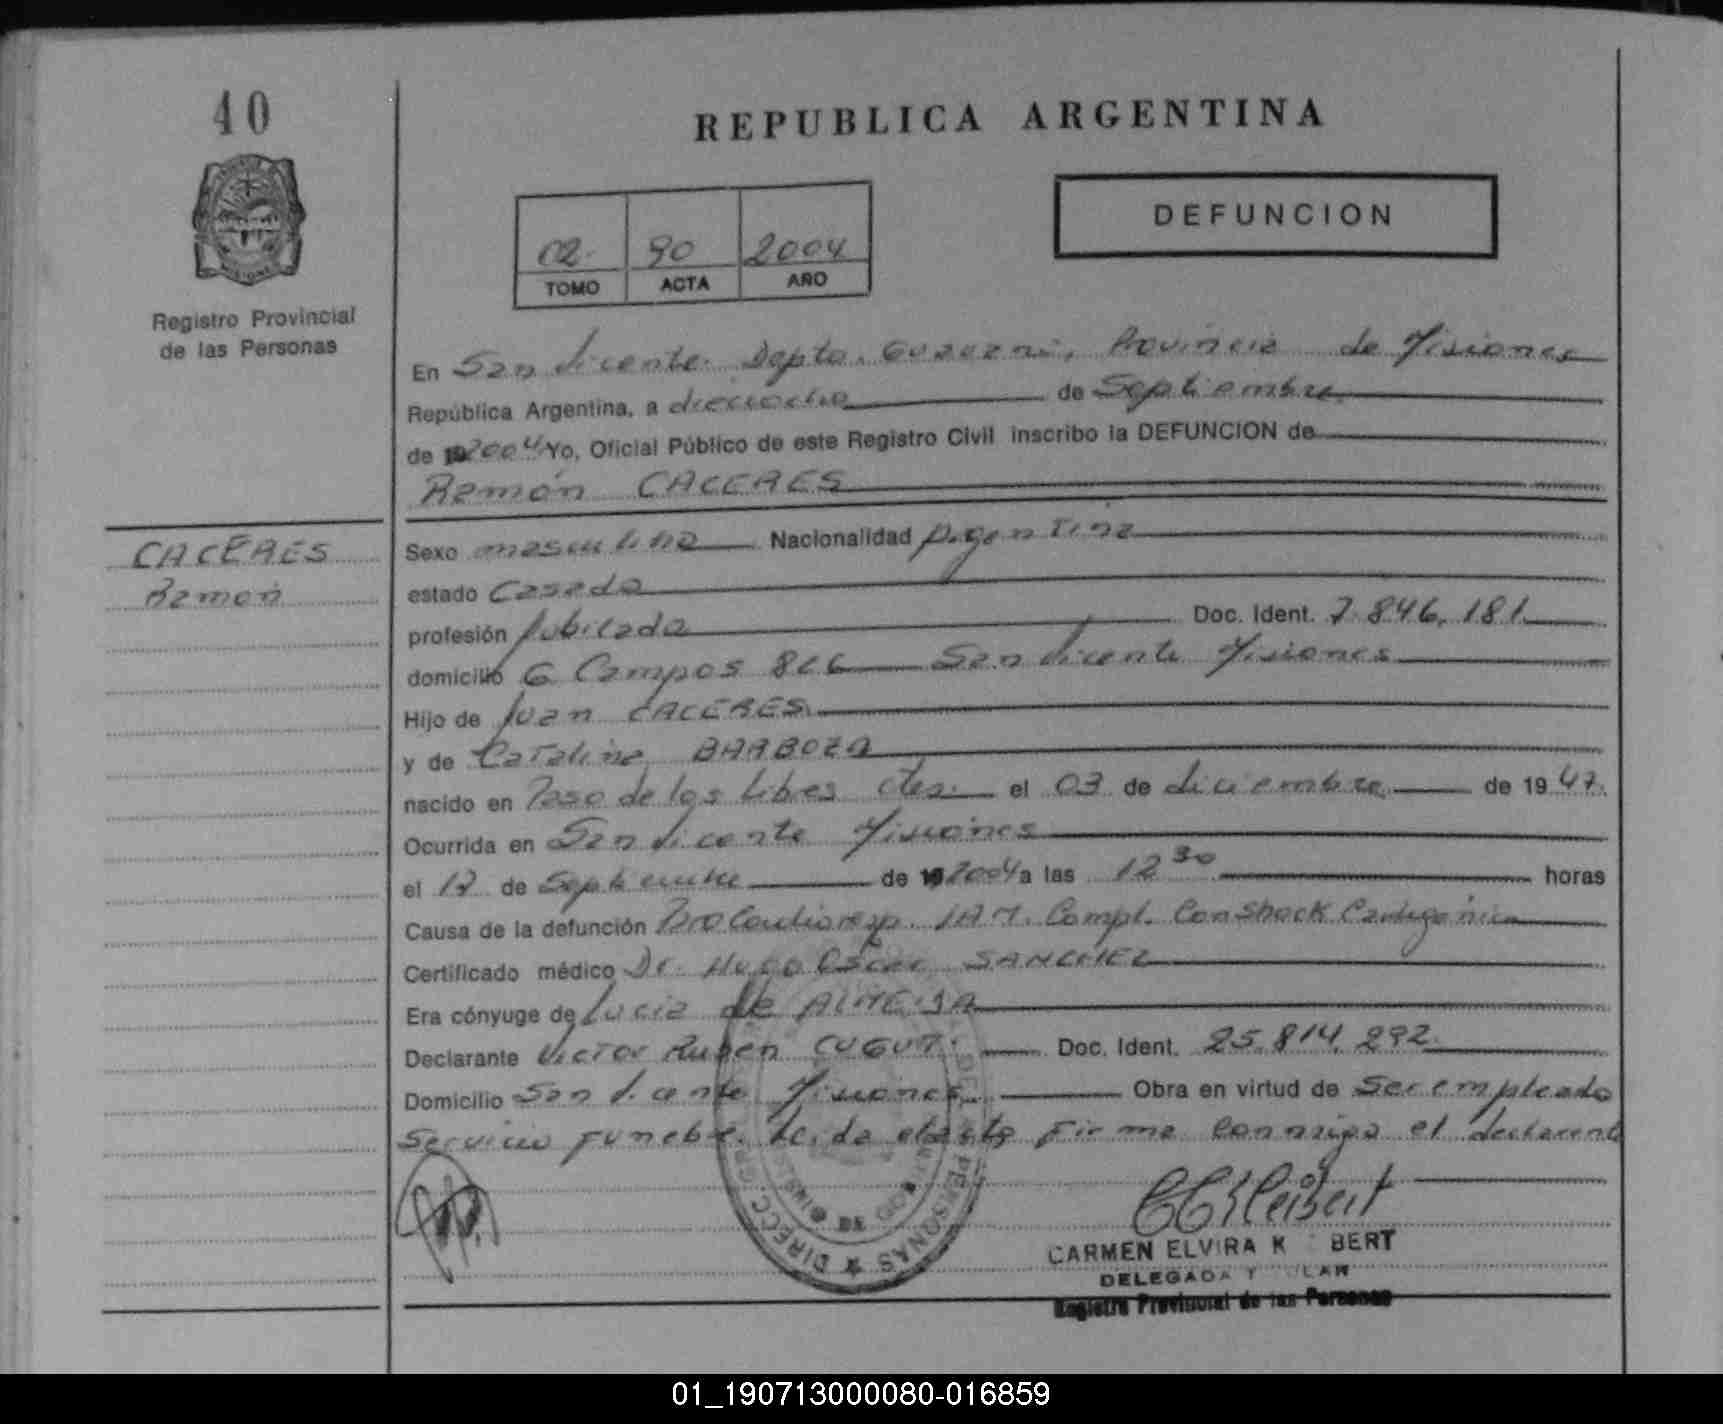 40
REPUBLICA ARGENTINA
DEFUNCION
02 90 2004
TOMO ACTA AÑO
Registro Provincial
de las Personas
En San Vicente. Depto. Guaraní, Provincia de Misiones
República Argentina, a dieciocho de Septiembre
de 2004 Yo, Oficial Público de este Registro Civil inscribo la DEFUNCION de
Ramón CACERES
CACERES
Ramón
Sexo masculino Nacionalidad Argentina
estado Casado
profesión Jubilado Doc. Ident. 7.846.181
domicilio G. Campos 826 San Vicente Misiones
Hijo de Juan CACERES
y de Catalina BARBOZA
nacido en Paso de los Libres Ctes. el 03 de diciembre de 1947.
Ocurrida en San Vicente Misiones
el 17 de Septiembre de 2004 a las 12 30 horas
Causa de la defunción Paro Cardioresp. IAM. Compl. Con Shock Cardiogénico
Certificado médico Dr. Hugo Oscar SANCHEZ
Era cónyuge de Lucia de ALMEIDA
Declarante Victor Ruben Doc. Ident. 25.814.292
Domicilio San Vicente Misiones. Obra en virtud de Ser empleado
Servicio Funebre. Leida el acta Firma Conmigo el declarante
CARMEN ELVIRA K BERT
DELEGADA
Registro Provincial de las Personas
DIRECC PERSONAS
01_190713000080-016859